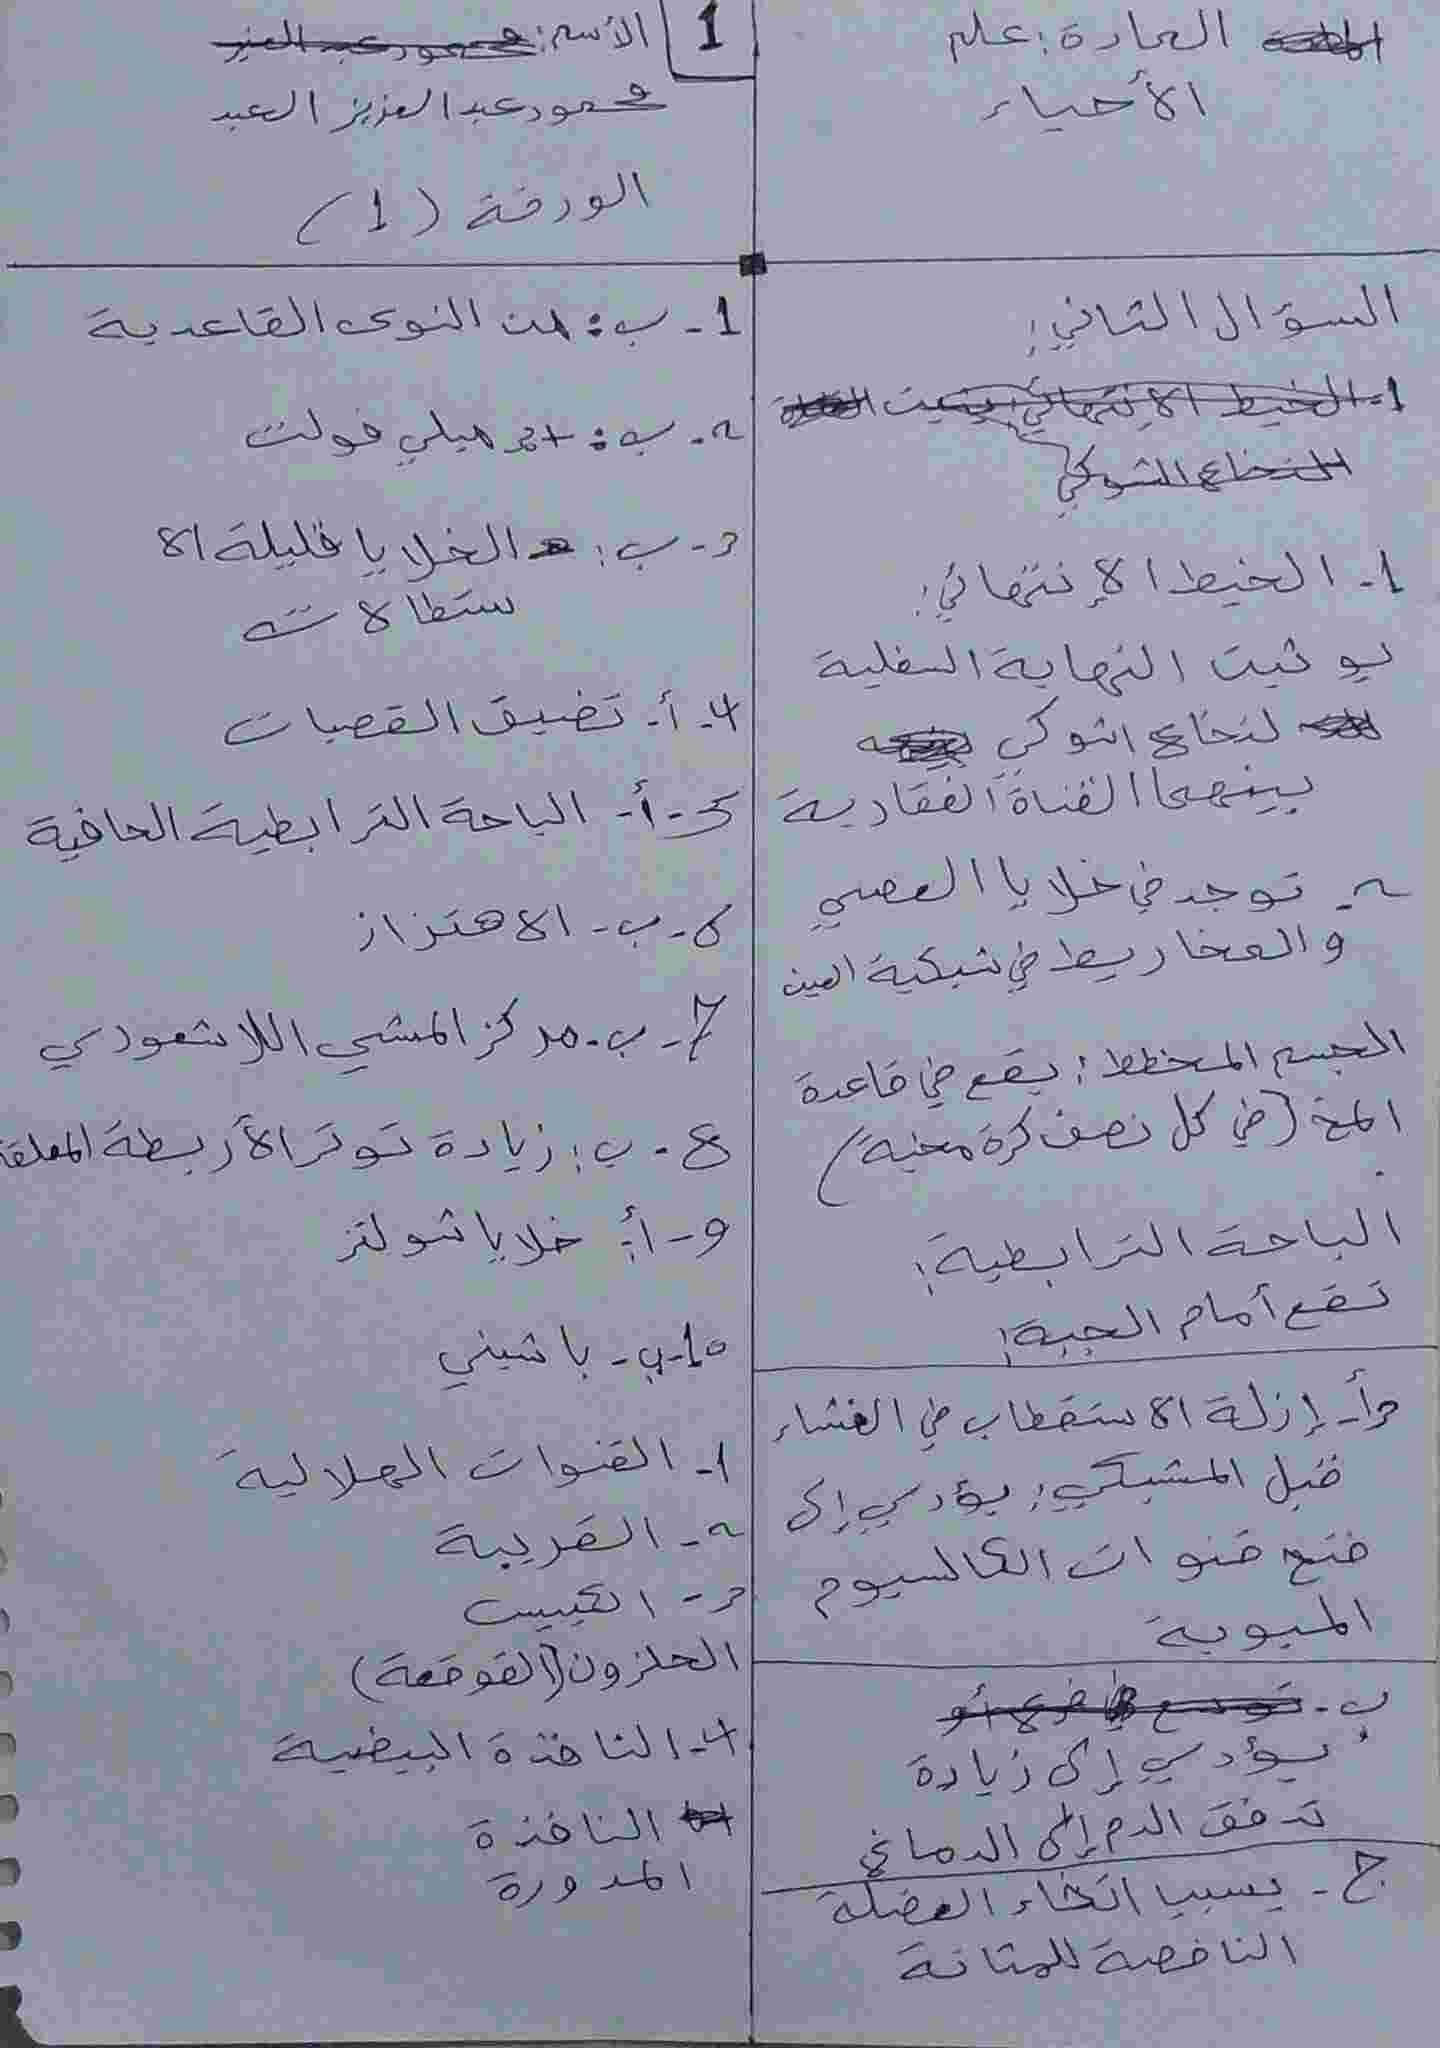 المادة: علم
الأحياء
1
الأسم:
محمود عبد العزيز العبد
الورقة (1)
السؤال الثاني:
1- الخيط الإنتهائي:
يو ثبت النهاية السفلية
لنخاع الشوكي
بينهما القناة الفقارية
2- توجد في خلايا العصي
والمخاريط في شبكية العين
الجسم المخطط: يقع في قاعدة
المخ (في كل نصف كرة مخية)
الباحة الترابطية:
تقع أمام الجبهة:
3أ- إزلة الاستقطاب في الغشاء
قبل المشبكي: يؤدي إلى
فتح قنوات الكالسيوم
المبوبة
ب-
يؤدي إلى زيادة
تدفق الدم إلى الدماغي
ج- يسبب اتخاء العضلة
الناقصة للمثانة
1- ب: من النوى القاعدية
2- ب: ميلي فولت
3- ب: الخلايا قليلة الا
ستطالات
4- أ- تضيق القصبات
5- أ- الباحة الترابطية الحافية
6- ب- الاهتزاز
7- ب- مركز المشي اللاشعوري
8- ب: زيادة توتر الأربطة المعلقة
9- أ: خلايا شولتز
10- ب- باشيني
1- القنوات الهلالية
2- القريبة
3- الكييس
الحلزون (القوقعة)
4- النافذة البيضية
النافذة
المدورة